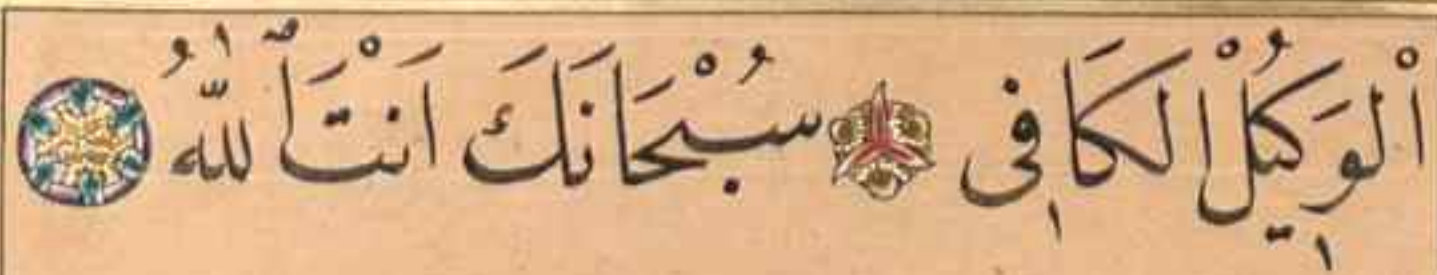 اَلْوَكٖيلُ الْكَافٖى سُبْحَانَكَ اَنْتَ اللّٰهُ